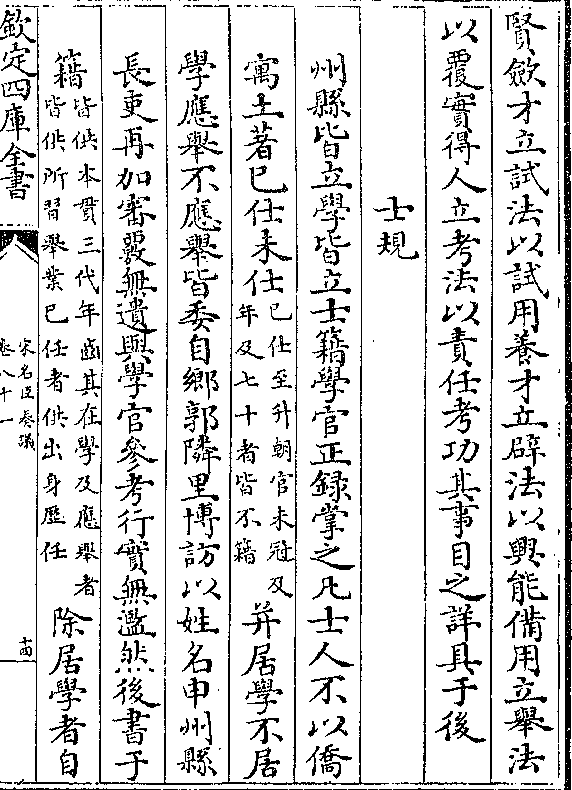 賢斂才立試法以試用養才立辟法以興能備用立舉法
以覆實得人立考法以責任考功其事目之詳具于後
士規
州縣皆立學皆立士籍學官正録掌之凡士人不以僑
寓土著已仕未仕已仕至升朝官未冠及年及七十者皆不籍并居學不居
學應舉不應舉皆委自鄉郭隣里博訪以姓名申州縣
長吏再加審覈無遺與學官參考行實無濫然後書于
籍皆供本貫三代年齒其在學及應舉者皆供所習舉業已任者供出身歷任除居學者自
欽定四庫全書
宋名臣奏議
卷八十一
十四